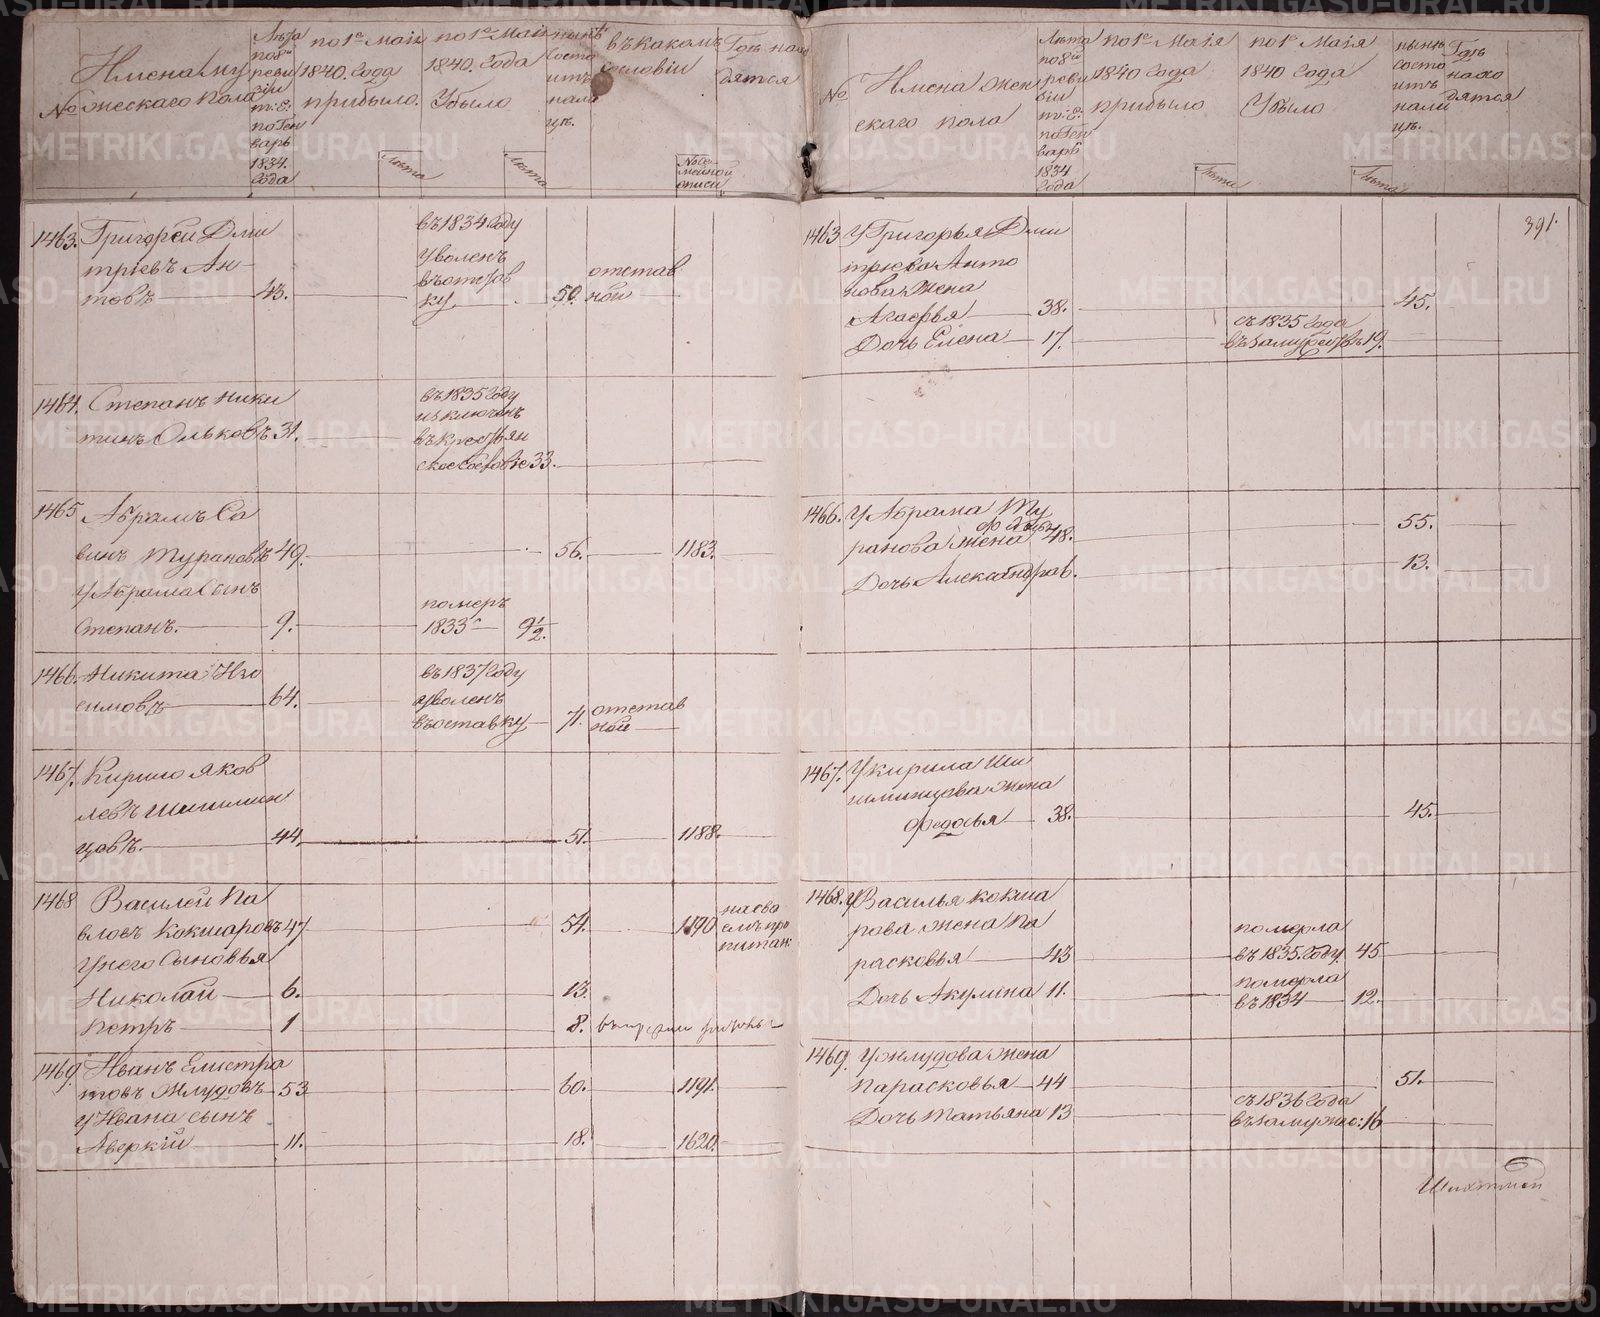 №
Имена му
жескаго пола
Лѣта
по 8й
реви
зіи
т: е:
по Ген
варь
1834.
Года
по 1е Маія
1840. Года
прибыло.
Лѣта
по 1е Маія
1840. Года
Убыло
Лѣта
нынѣ
состо
итъ
нали
цѣ.
въ какомъ
сословіи
№ Се-
мейной
описи
Гдѣ нахо
дятся
1463. Григорей Дми
тріевъ Ан-
товъ 43.
въ 1834 Году
уволенъ
въ отстав
ку 50.
отстав
ной
1464. Степанъ Ники
тинъ Ольковъ 31.
въ 1835 Году
изключенъ
въ крестьян
ское сословіе 33.
1465 Абрамъ Са
винъ Турановъ 49. 56. 1183.
у Абрама Сынъ
Степанъ. 9.
померъ
1833 9½.
1466. Никита Изо
симовъ 64.
въ 1837 Году
уволенъ
въ оставку 71.
отстав
ной
1467. Кирило Яков
левъ Шишмин
цовъ. 44. 51. 1188.
1468 Василей Па
вловъ Кокшаровъ 47 54. 1190
на сво
емъ про
питан:
У него Сыновья
Николай 6. 13.
Петръ 1 8.
1469. Иванъ Елистра
товъ Жлудовъ 53 60. 1191.
у Ивана сынъ
Аверкій 11. 18. 1620.
№
Имена жен
скаго пола
Лѣта
по 8й
реви
зіи
т: е:
по Ген
варь
1834
Года
по 1е Маія
1840 Года
прибыло
Лѣта
по 1е Маія
1840 Года
Убыло
Лѣта
нынѣ
состо
итъ
нали
цѣ.
Гдѣ
нахо
дятся
391.
1463 У Григорья Дми
тріева Анто
нова Жена
Агафья 38. 45.
Дочь Елена 17.
съ 1835 Года
въ замужествѣ 19.
1466. У Абрама Ту
ранова жена 48. 55.
Дочь Александра 6. 13.
1467. У Кирила Ши
шминцова жена
Федосья 38. 45.
1468. У Василья Кокша
рова жена Па
расковья 43
померла
въ 1835. Году 45
Дочь Акулина 11.
померла
въ 1834 12.
1469. У Жлудова жена
Парасковья 44 51.
Дочь Татьяна 13
съ 1836 Года
въ замужес: 16
METRIKI.GASO-URAL.RU